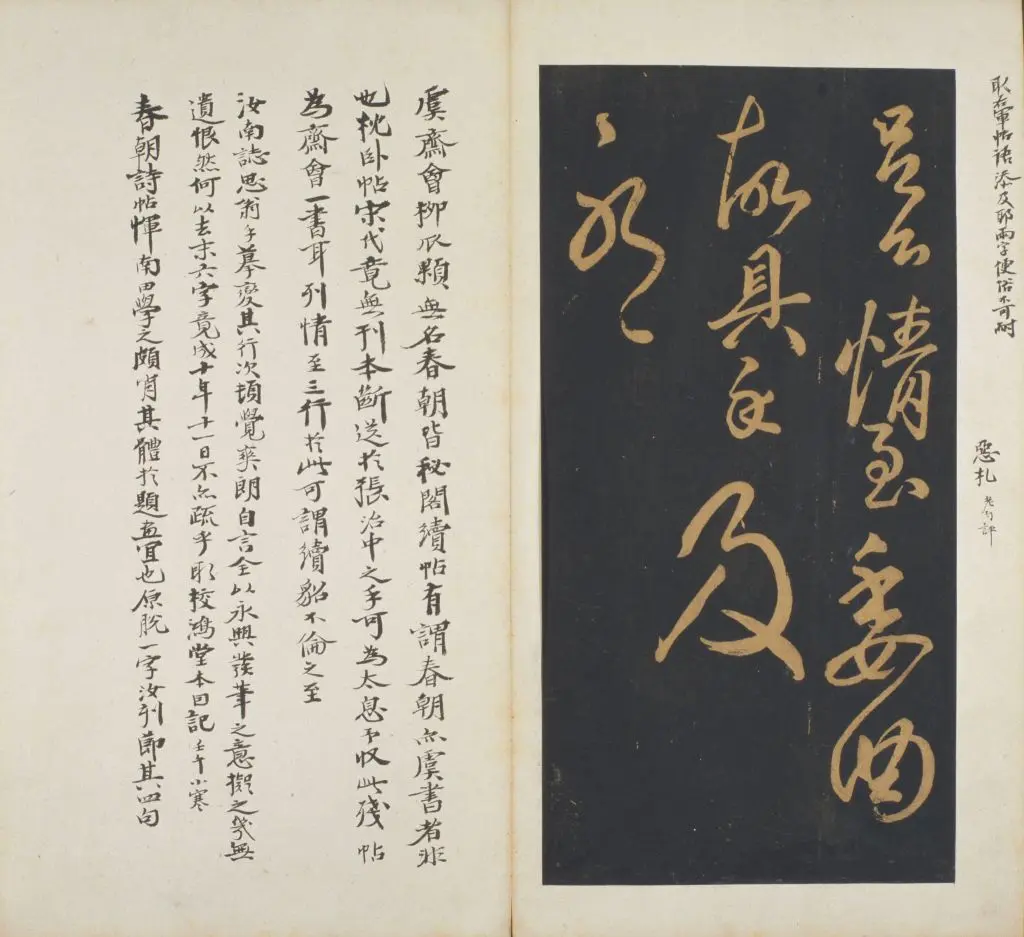 取右軍帖語添及耶兩字便俗不可耐
惡札
情至委曲
故具示及
耶
虞齋會柳瓜顆無名春朝皆秘閣續帖有謂春朝亦虞書者非
也枕臥帖宋代竟無刊本斷送於張治中之手可為太息予收此殘帖
為齋會一書耳列情至三行於此可謂續貂不倫之至
汝南誌思翁手摹變其行次頓覺爽朗自言全以永興發筆之意擬之幾無
遺恨然何以去末六字竟成十年十一日不亦疏乎耶校鴻堂本因記 壬午小寒
春朝詩帖惲南田學之頗肖其體於題畫宜也原脫一字汝刊節其四句